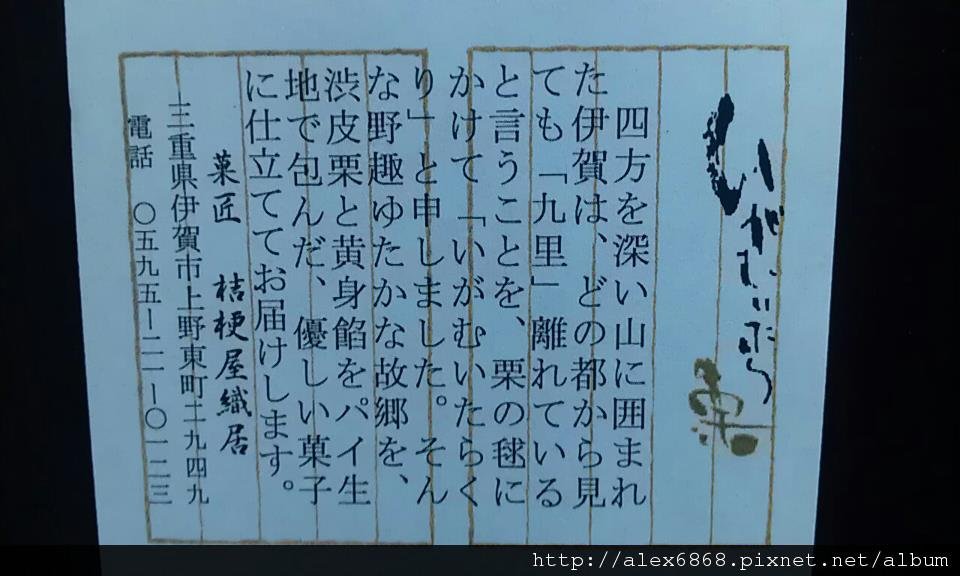 いがむいたら
栗
四方を深い山に囲まれ
た伊賀は、どの都から見
ても「九里」離れている
と言うことを、栗の毬に
かけて「いがむいたらく
り」と申しました。そん
な野趣ゆたかな故郷を、
渋皮栗と黄身餡をパイ生
地で包んだ、優しい菓子
に仕立ててお届けします。
菓匠 桔梗屋織居
三重県伊賀市上野東町二九四九
電話 〇五九五ー二一ー〇一二三
http://alex6868.pixnet.net/album